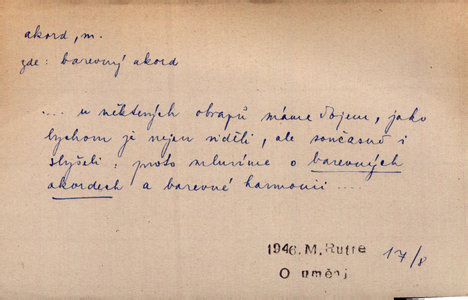 akord, m.
zde: barevný akord
.... u některých obrazů máme dojem, jako
bychom je nejen viděli, ale současně i
slyšeli: proto mluvíme o barevných
akordech a barevné harmonii ....
1946. M. Rutte
O umění
17/8